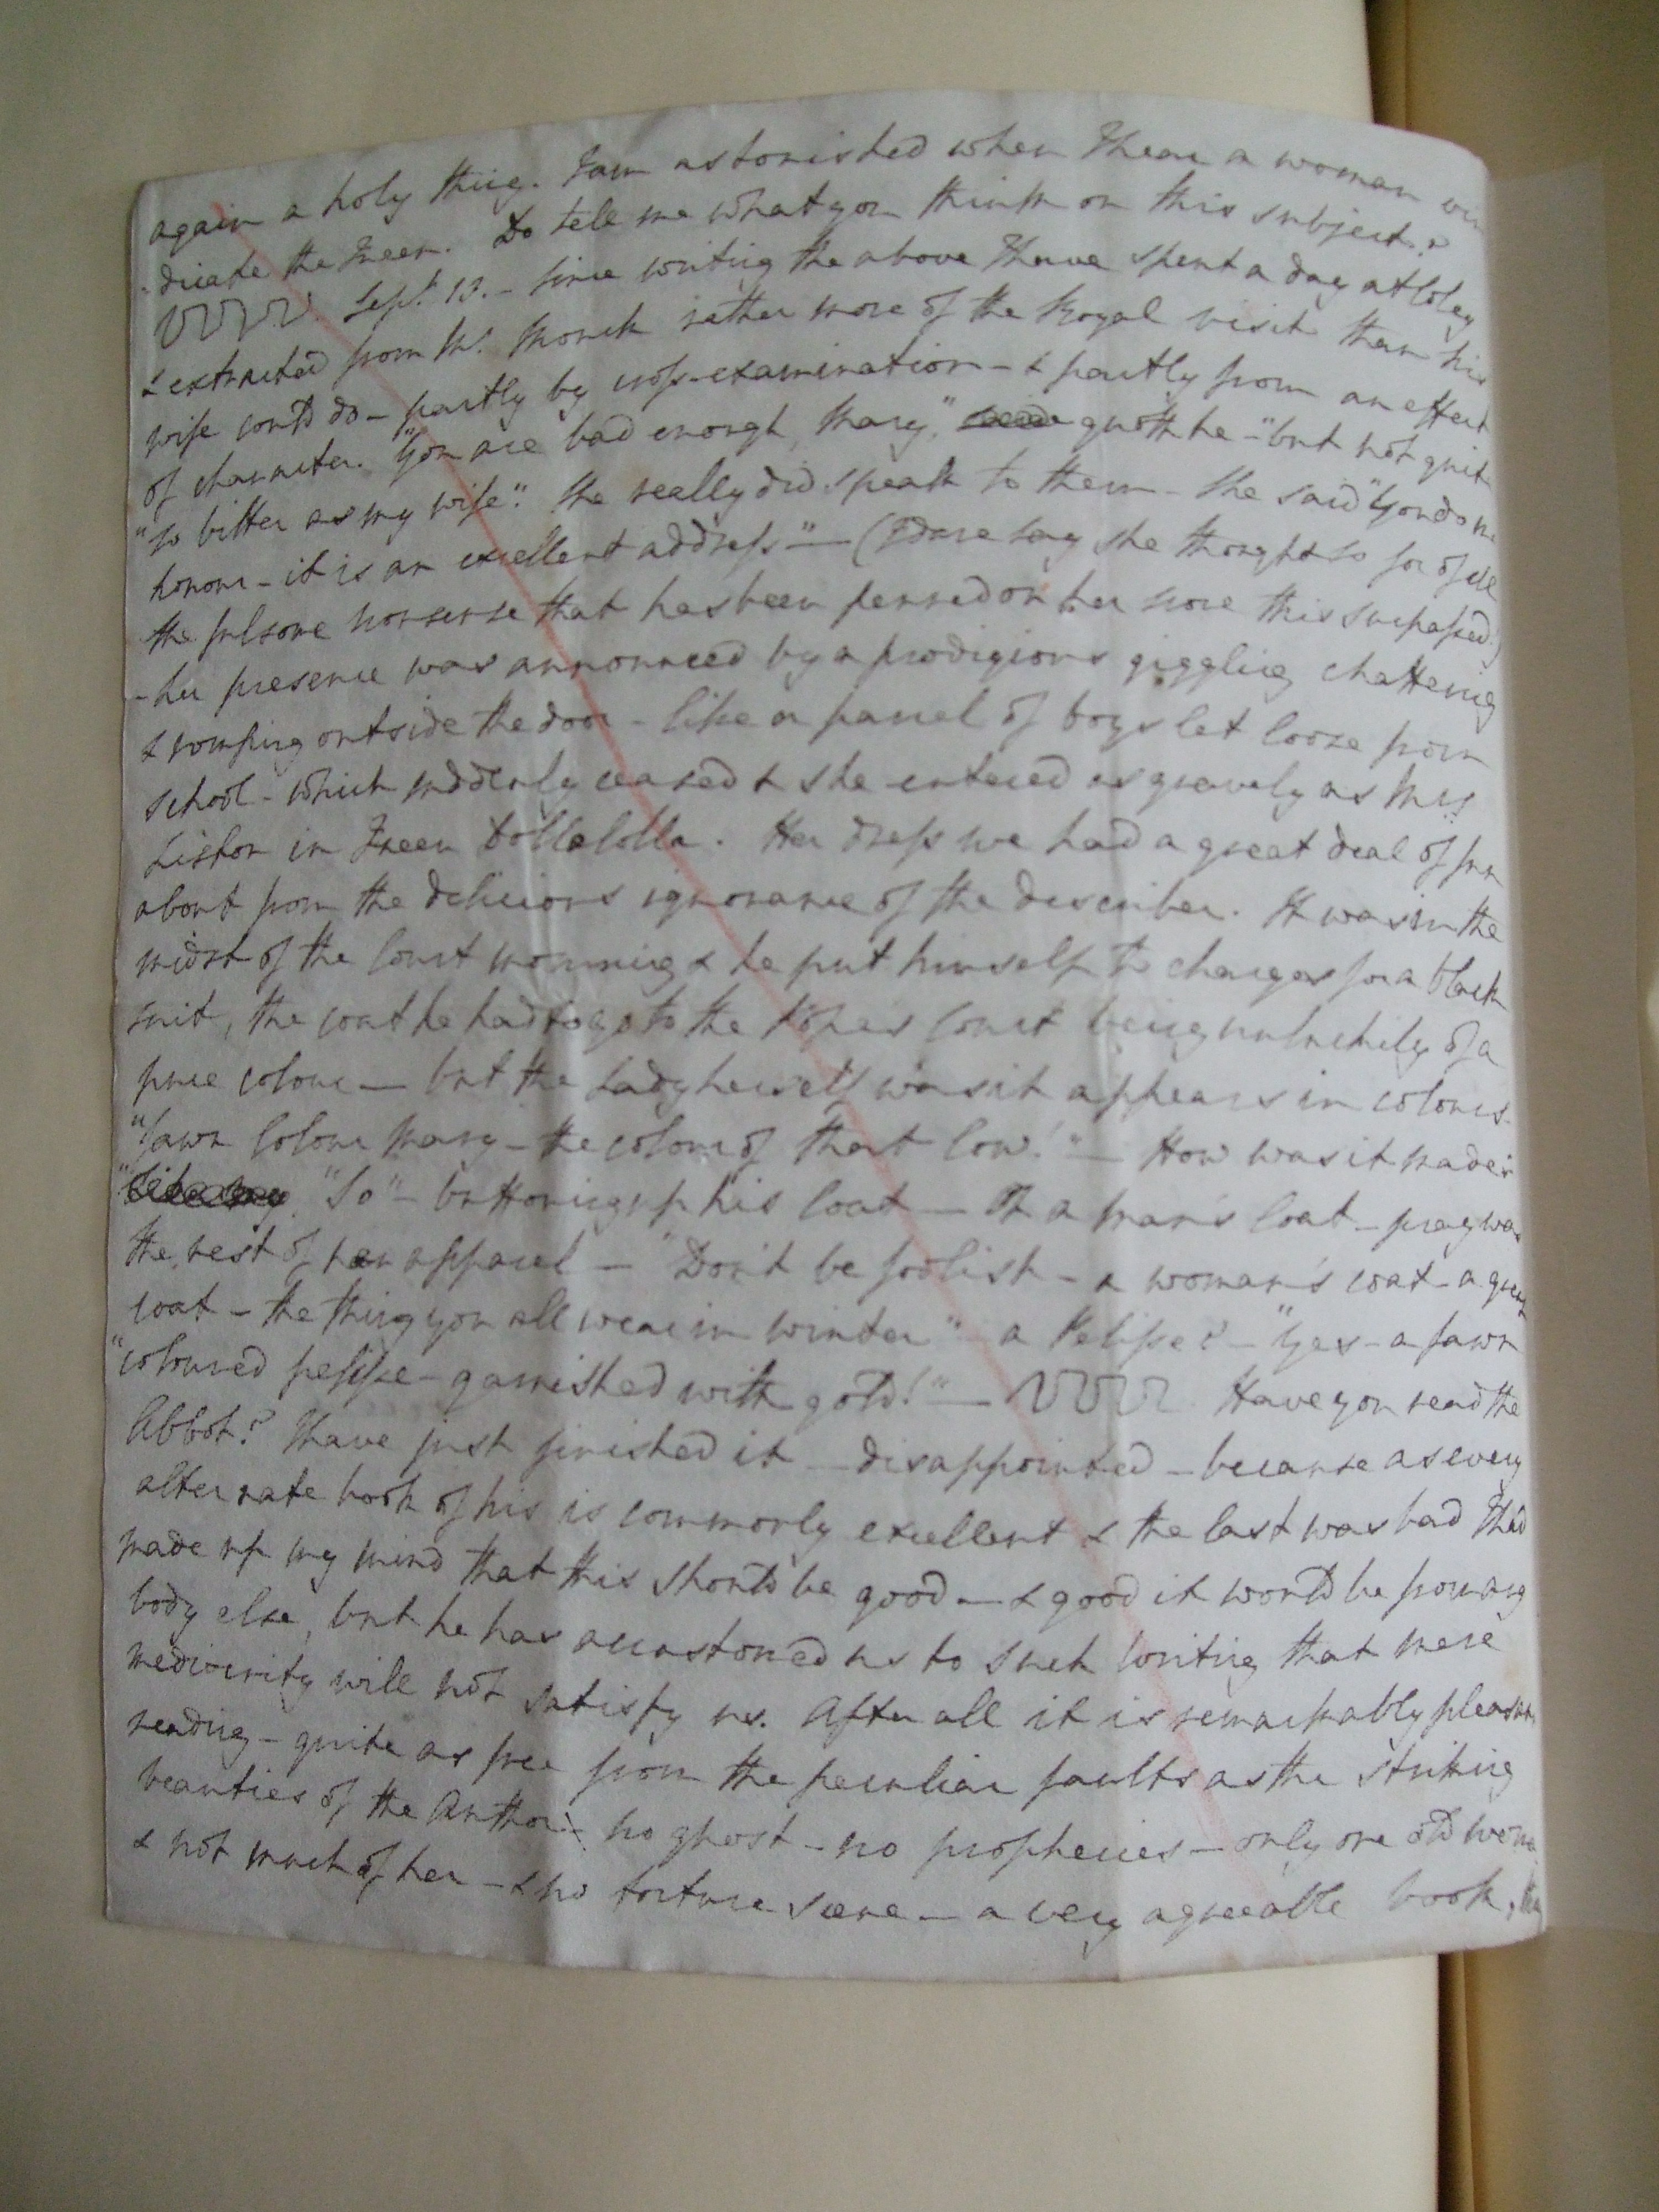 again a holy thing. I am astonished when I hear a woman vin
-dicate the Queen. Do tell me what you think on this subject.?
Sept. 13. - Since writing the above I have spent a day at Coley
& extracted from Mr. Monck rather more of the Royal visit than his
wife could do - partly by cross-examination - & partly from an effect
of character. "You are bad enough, Mary," quoth he - "but not quite
"so bitter as my wife". She really did speak to them - She said "You do me
honour - it is an excellent address" - (I dare say she thought so for of all
the fulsome nonsense that has been penned on her score this surpassed!)
- her presence was announced by a prodigious giggling chattering
& romping outside the door - like a parcel of boys let loose from
school - which suddenly ceased & she entered as gravely as Mrs.
Liston in Queen Dollalolla. Her dress we had a great deal of fun
about from the delicious ignorance of the describer. It was in the
midst of the Court mourning & he put himself to charges for a black
suit, the coat he had to go to the Pope's Court being unluckily of a
puce colour - but the Lady herself was it appears in colours -
"Fawn Colour Mary - the colour of that Cow!" - How was it made?
"So" - buttoning up his Coat - Of a Man's Coat - pray was
the rest of her apparel - "Don't be foolish - a woman's coat - a great
coat - the thing you all wear in winter" - a Pelisse? - "Yes - a fawn
"coloured pelisse - garnished with gold!" - Have you read the
Abbot? I have just finished it - disappointed - because as every
alternate book of his is commonly excellent & the last was bad I had
made up my mind that this should be good - & good it would be from any
body else, but he has accustomed us to such writing that mere
mediocrity will not satisfy us. After all it is remarkably pleasant
reading - quite as free from the peculiar faults as the striking
beauties of the Author - no ghost - no prophecies - only one old woman
& not much of her - & no torture scene - a very agreeable book,